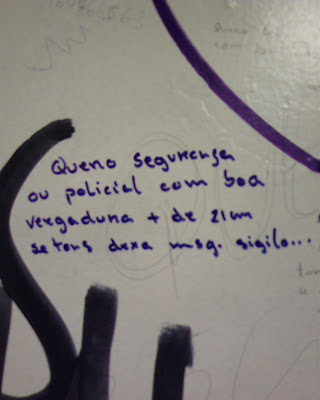 Quero seguransa
ou policial com boa
vergadura + de 21cm
se tens dexa msg. sigilo...